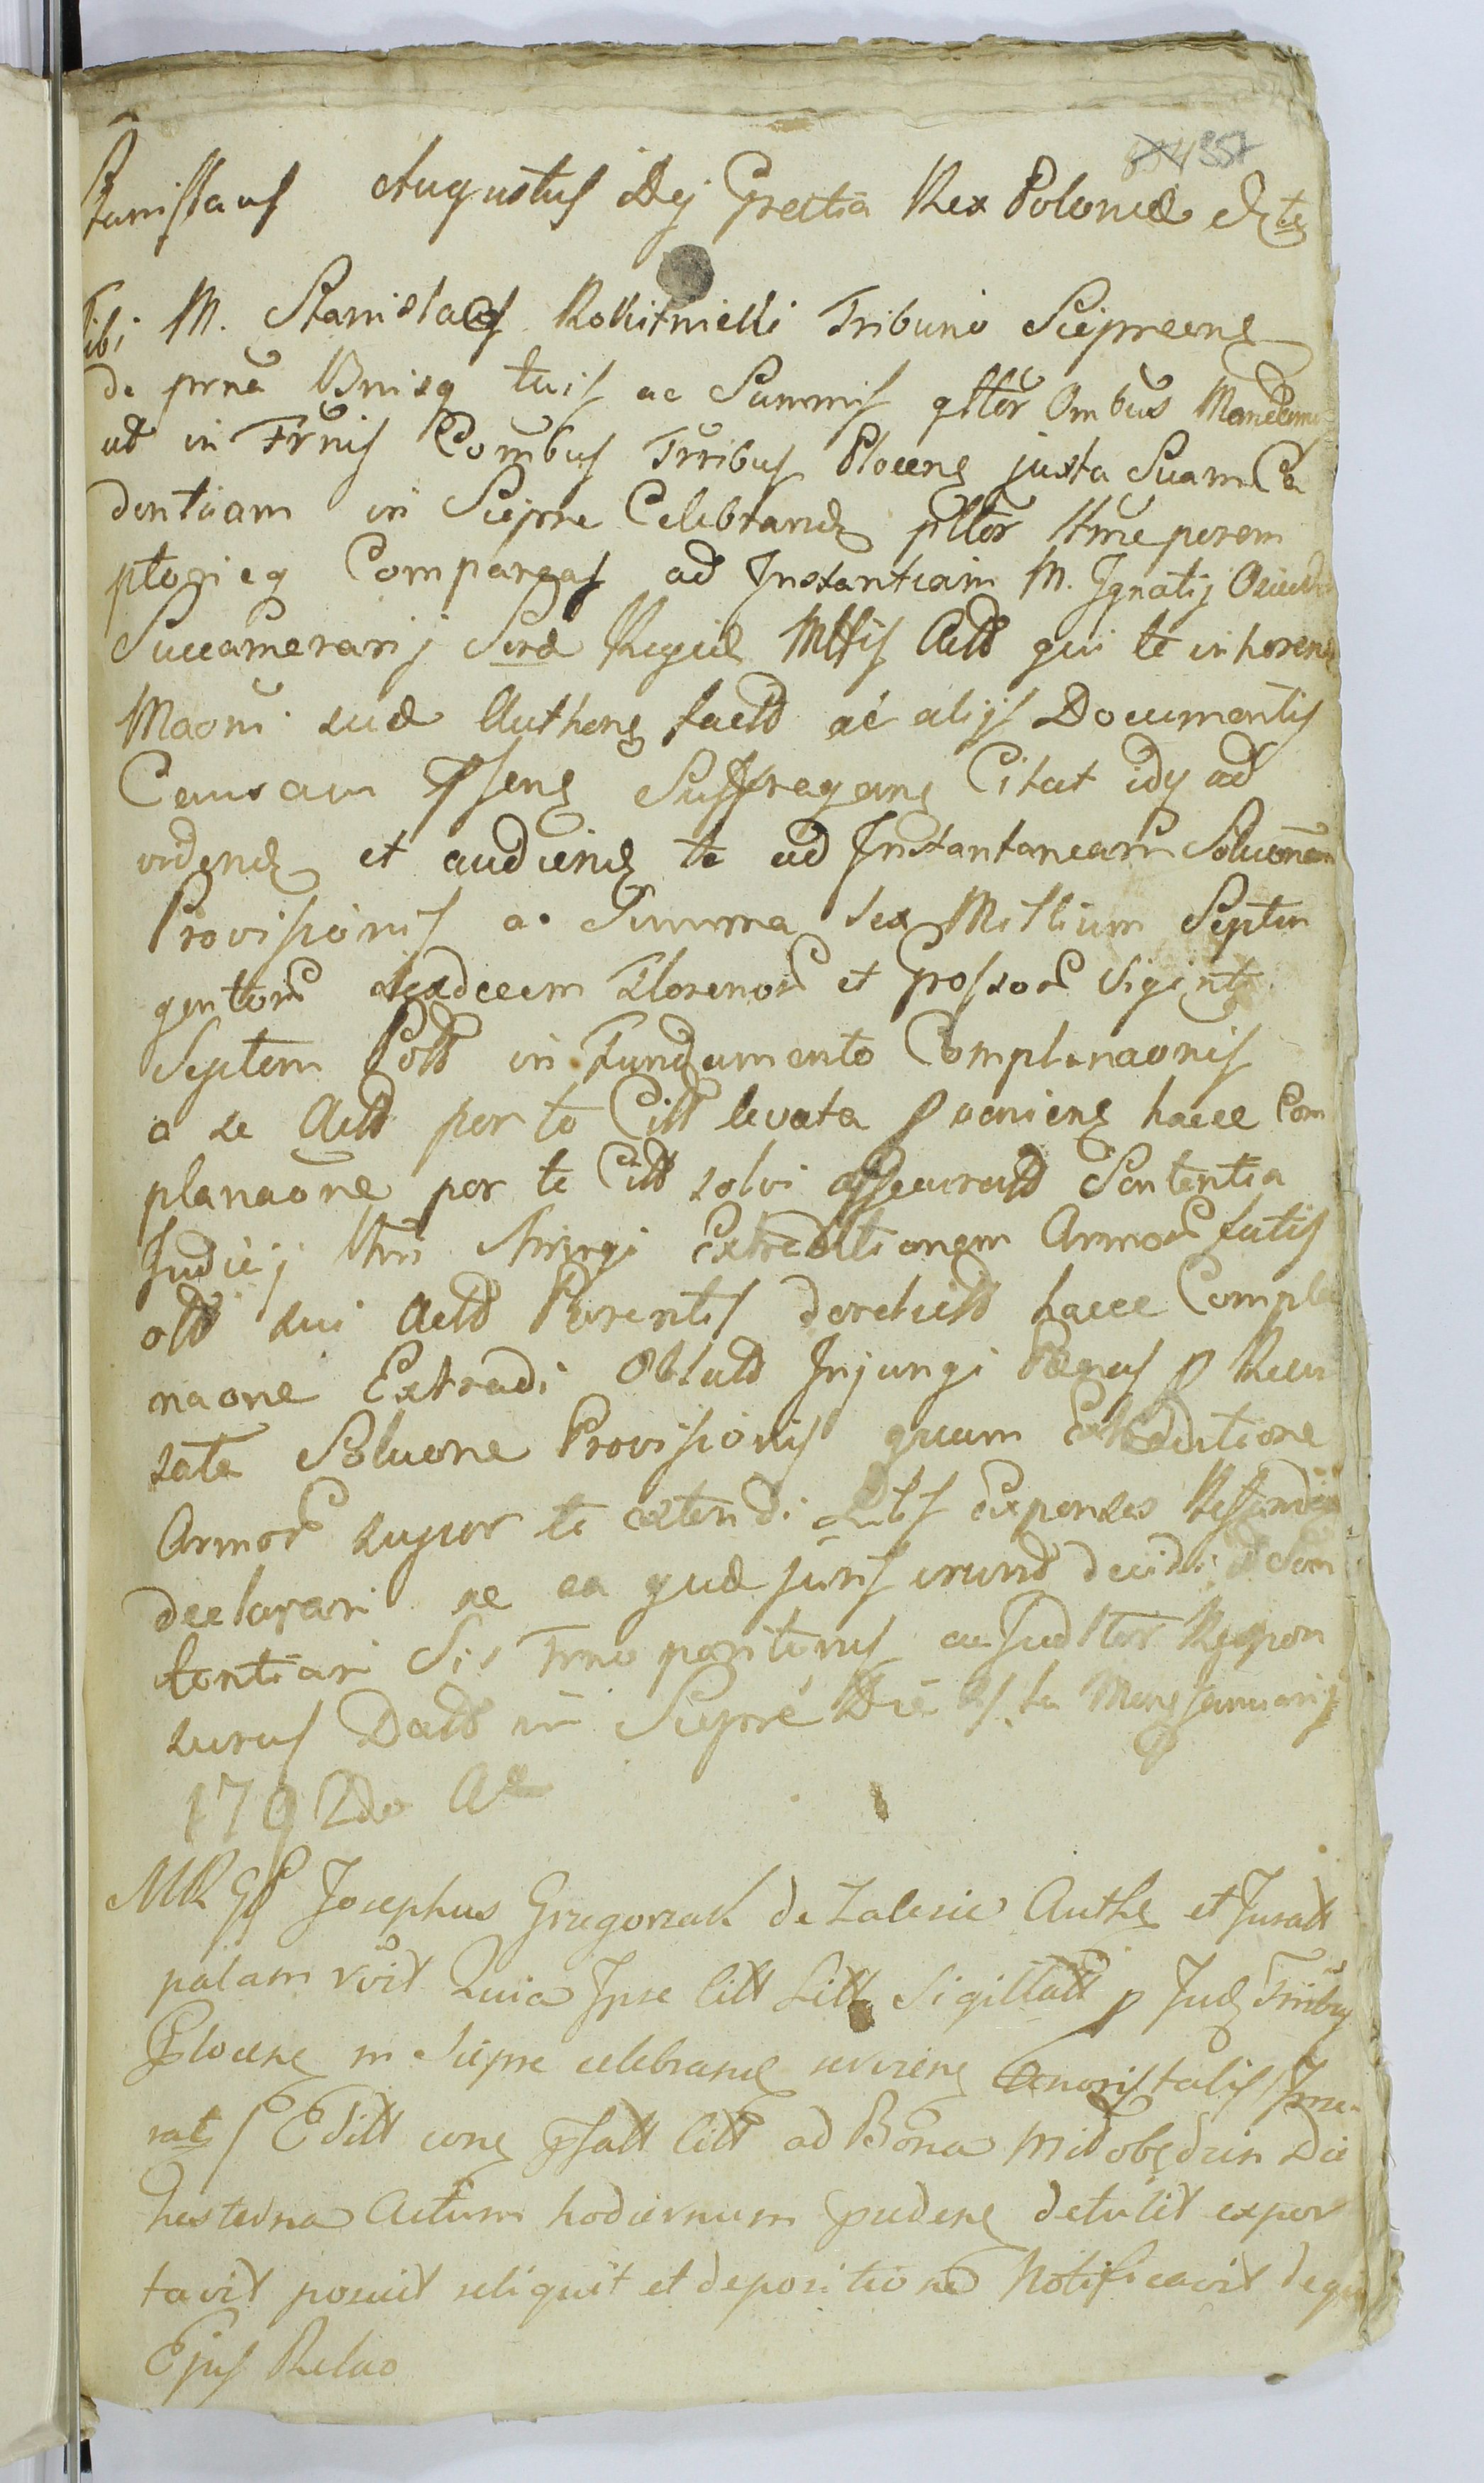 357
Stanislaus Augustus Dej Gratia Rex Poloniæ &cte
Tibi M. Stanislao Rokitnicki Tribuno Sieprcens
de prna Bnisq tuis ac Summis gltèr Ombus Mandamus
ut in Trnis Combus Trribus Plocens juxta Suam Ca
dentiam in Sieprc Celebrand pltèr ttme perem
ptorieq Compareas ad Instantiam M. Ignatij
Succamerarij Sacræ Regiæ Mttis Actt qui te inhærend
Maoni suæ Authens factt ac alijs Documentis
Causam psens Suffragans Citat idq ad
vidend et audiend te ad Instantaneam Soluonem
Provisionis a Summa Sex Millium Septin
gentorum sexdecem Florenorum et Grossorum Viginti
Septem Poll in Fundamento Complanaonis
a se Actt per te Citt levata proveniens hacce Com
planaone per te Citt solvi assecuratt Sententia
Judicij ttri Stringi Extraditionem Armorum
olt sui Actt Parentis derelictt hacce Compla
naone Extradi Oblatt Injungi Pænas p Recu
sata Soluone Provisionis quam Extraditione
Armorum super te extendi Litis Expensas Refundi
declarari ac ea quæ juris erunt decidi et Sen
tentiari Sis Trno pariturus ac Judltèr Respon
surus Datt in Sieprc Die Mens Januarij
1792do Ao
MRgs Josephus Grzegorzak de Zalesie Auths et Juratt
palam rvit Quia Ipse litt Litt Sigillatt p Jud Trribus
Plocens in Sieprc celebrand serviens tenoris talis /Inse-
rat/ Editt cons psatt litt ad Bona Miłobędzin Die
hesterna Actum hodiernum præcedens detulit expor
tavit posuit reliquit et depositione Notificavit deque
Ejus Relao